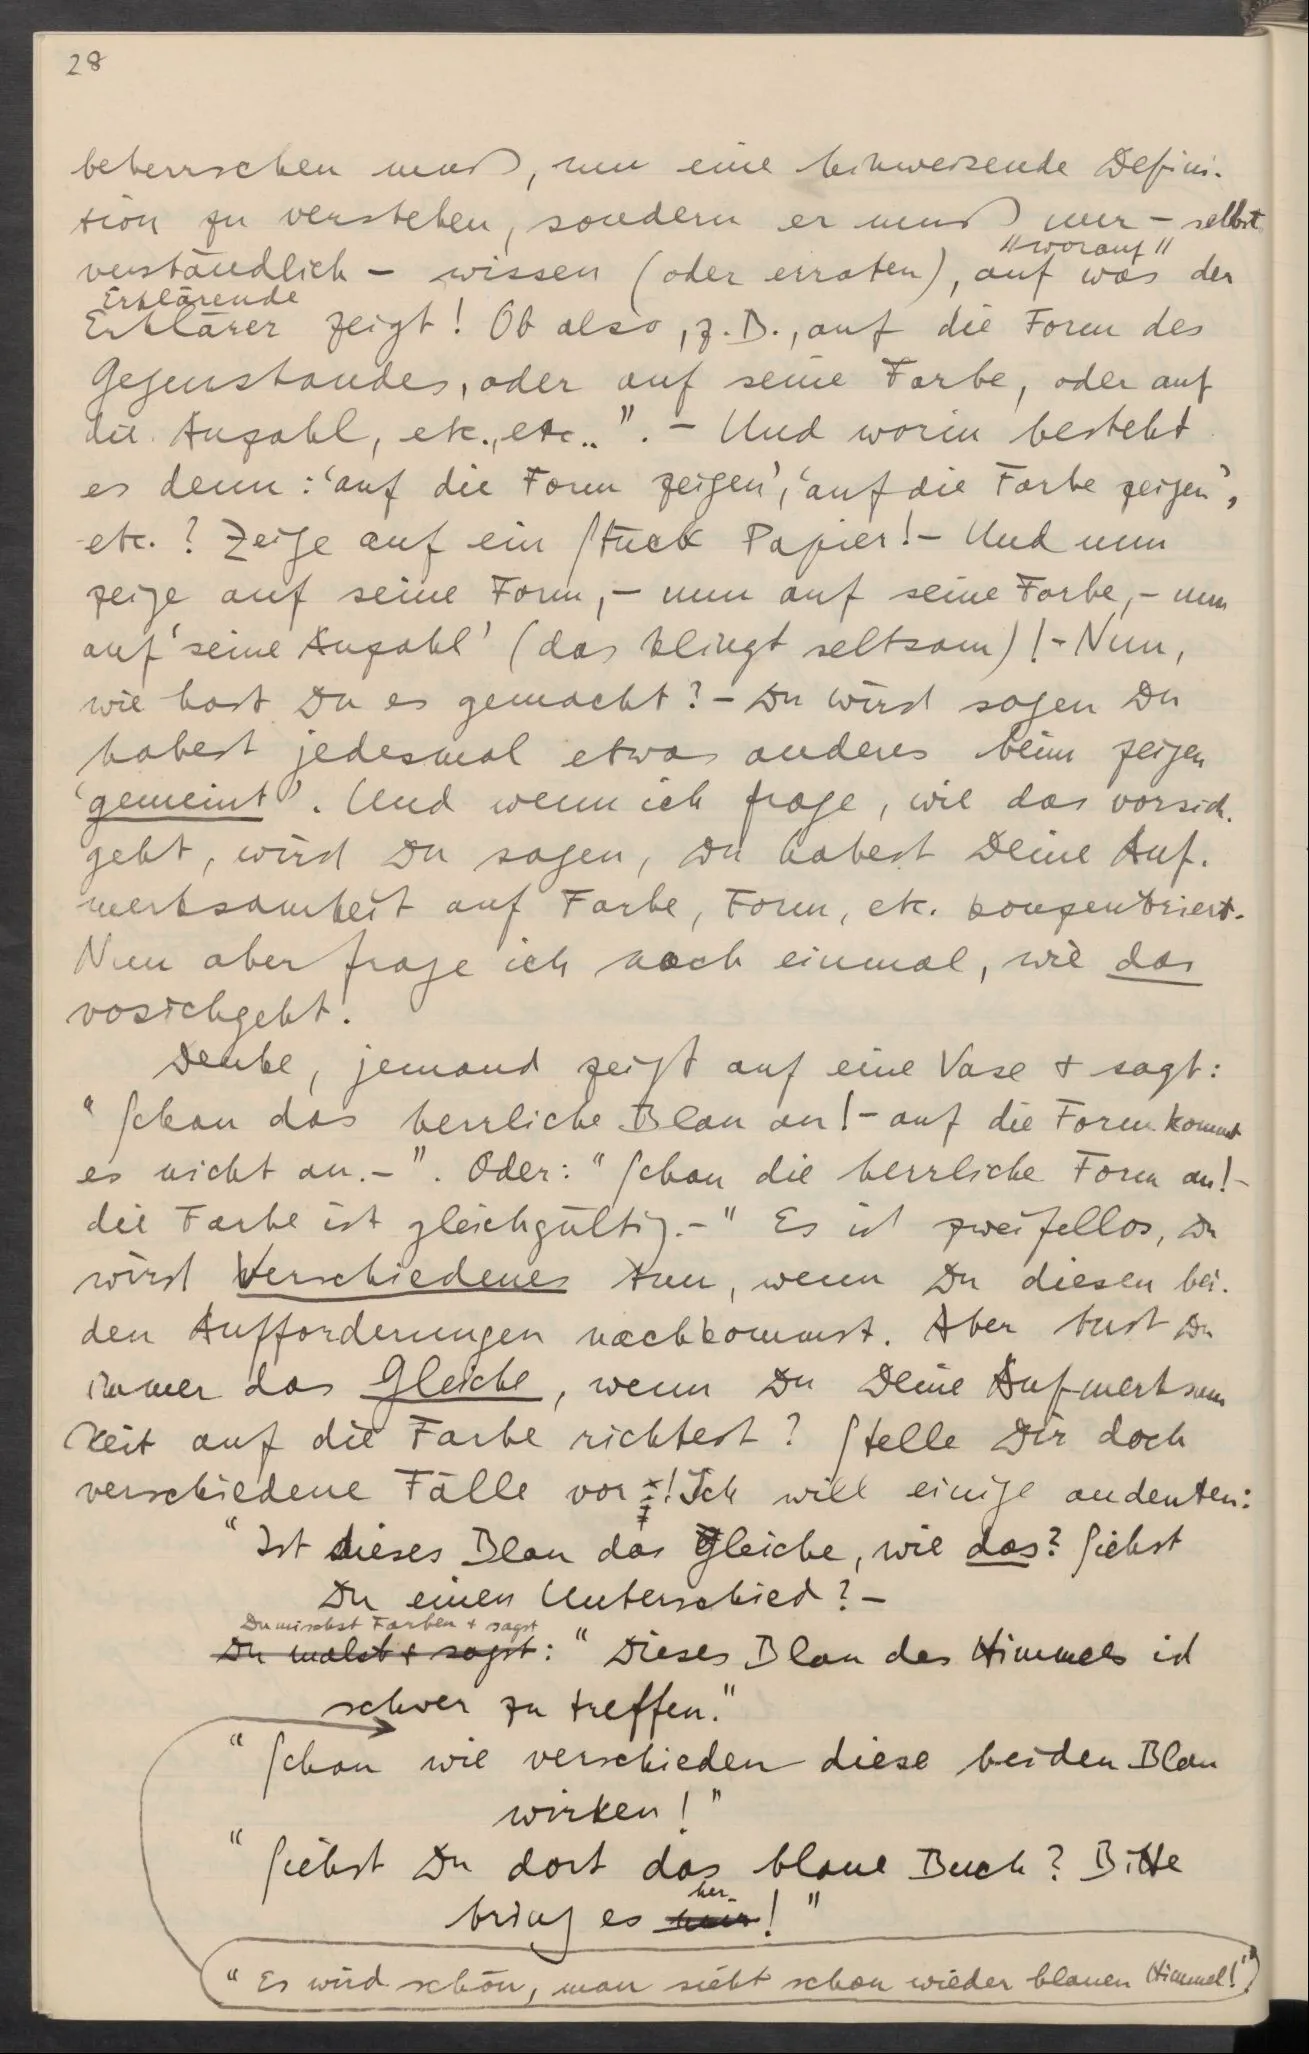 28
beherrschen muß, um eine hinweisende Defini-
tion zu verstehen, sondern er muß nur – selbst
"worauf"
verständlich – wissen (oder erraten), auf was der
Erklärende
Erklärer zeigt! Ob also, z.B., auf die Form des
Gegenstandes, oder auf seine Farbe, oder auf
die Anzahl, etc., etc..". – Und worin besteht
es denn: 'auf die Form zeigen', 'auf die Farbe zeigen',
etc.? Zeige auf ein Stück Papier! – Und nun
zeige auf seine Form, – nun auf seine Farbe, – nun
auf 'seine Anzahl' (das klingt seltsam)! – Nun,
wie hast Du es gemacht? – Du wirst sagen Du
habest jedesmal etwas anderes beim zeigen
'gemeint'. Und wenn ich frage, wie das vorsich-
geht, wirst Du sagen, Du habest Deine Auf-
merksamkeit auf Farbe, Form, etc. konzentriert.
Nun aber frage ich noch einmal, wie das
vosichgeht.
Denke, jemand zeigt auf eine Vase + sagt:
"Schau das herrliche Blau an! – auf die Form kommt
es nicht an. –". Oder: "Schau die herrliche Form an! –
die Farbe ist gleichgültig. –" Es ist zweifellos, Du
wirst Verschiedenes tun, wenn Du diesen bei-
den Aufforderungen nachkommst. Aber tust Du
immer das Gleiche, wenn Du Deine Aufmerksam
keit auf die Farbe richtest? Stelle Dir doch
verschiedene Fälle vor! Ich will einige andeuten:
"Ist dieses Blau das Gleiche, wie das? Siehst
Du einen Unterschied? –
Du mischst Farben + sagst
Du malst + sagst: "Dieses Blau des Himmels ist
schwer zu treffen."
"Schau wie verschieden diese beiden Blau
wirken!"
"Siehst Du dort das blaue Buch? Bitte
her-
bring es !"
"Es wird schön, man sieht schon wieder blauen Himmel!"